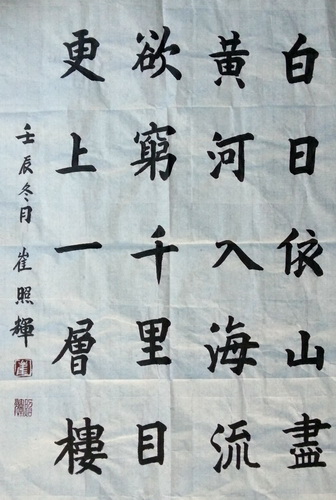 白日依山盡
黃河入海流
欲窮千里目
更上一層樓
壬辰冬月 崔照輝